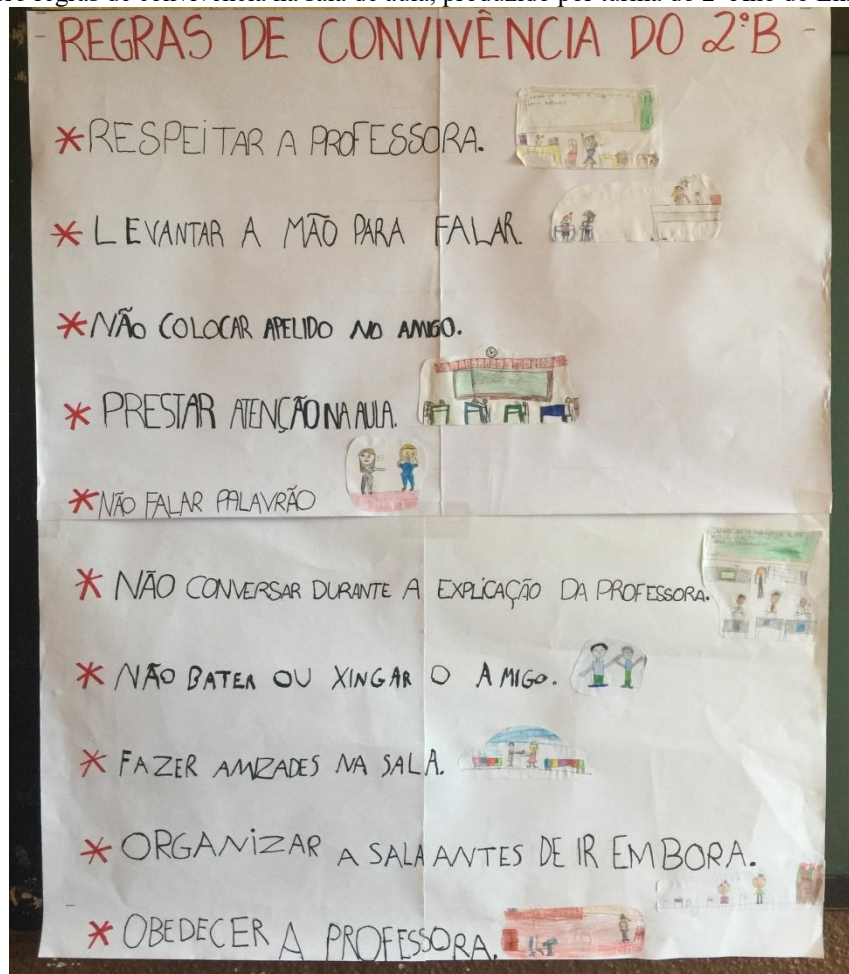 regras de convivência na sala de aula, produzido por turma do 2º
REGRAS DE CONVIVÊNCIA DO 2ºB
* RESPEITAR A PROFESSORA.
* LEVANTAR A MÃO PARA FALAR.
* NÃO COLOCAR APELIDO NO AMIGO.
* PRESTAR ATENÇÃO NA AULA.
* NÃO FALAR PALAVRÃO
* NÃO CONVERSAR DURANTE A EXPLICAÇÃO DA PROFESSORA.
* NÃO BATER OU XINGAR O AMIGO.
* FAZER AMIZADES NA SALA.
* ORGANIZAR A SALA ANTES DE IR EMBORA.
* OBEDECER A PROFESSORA.